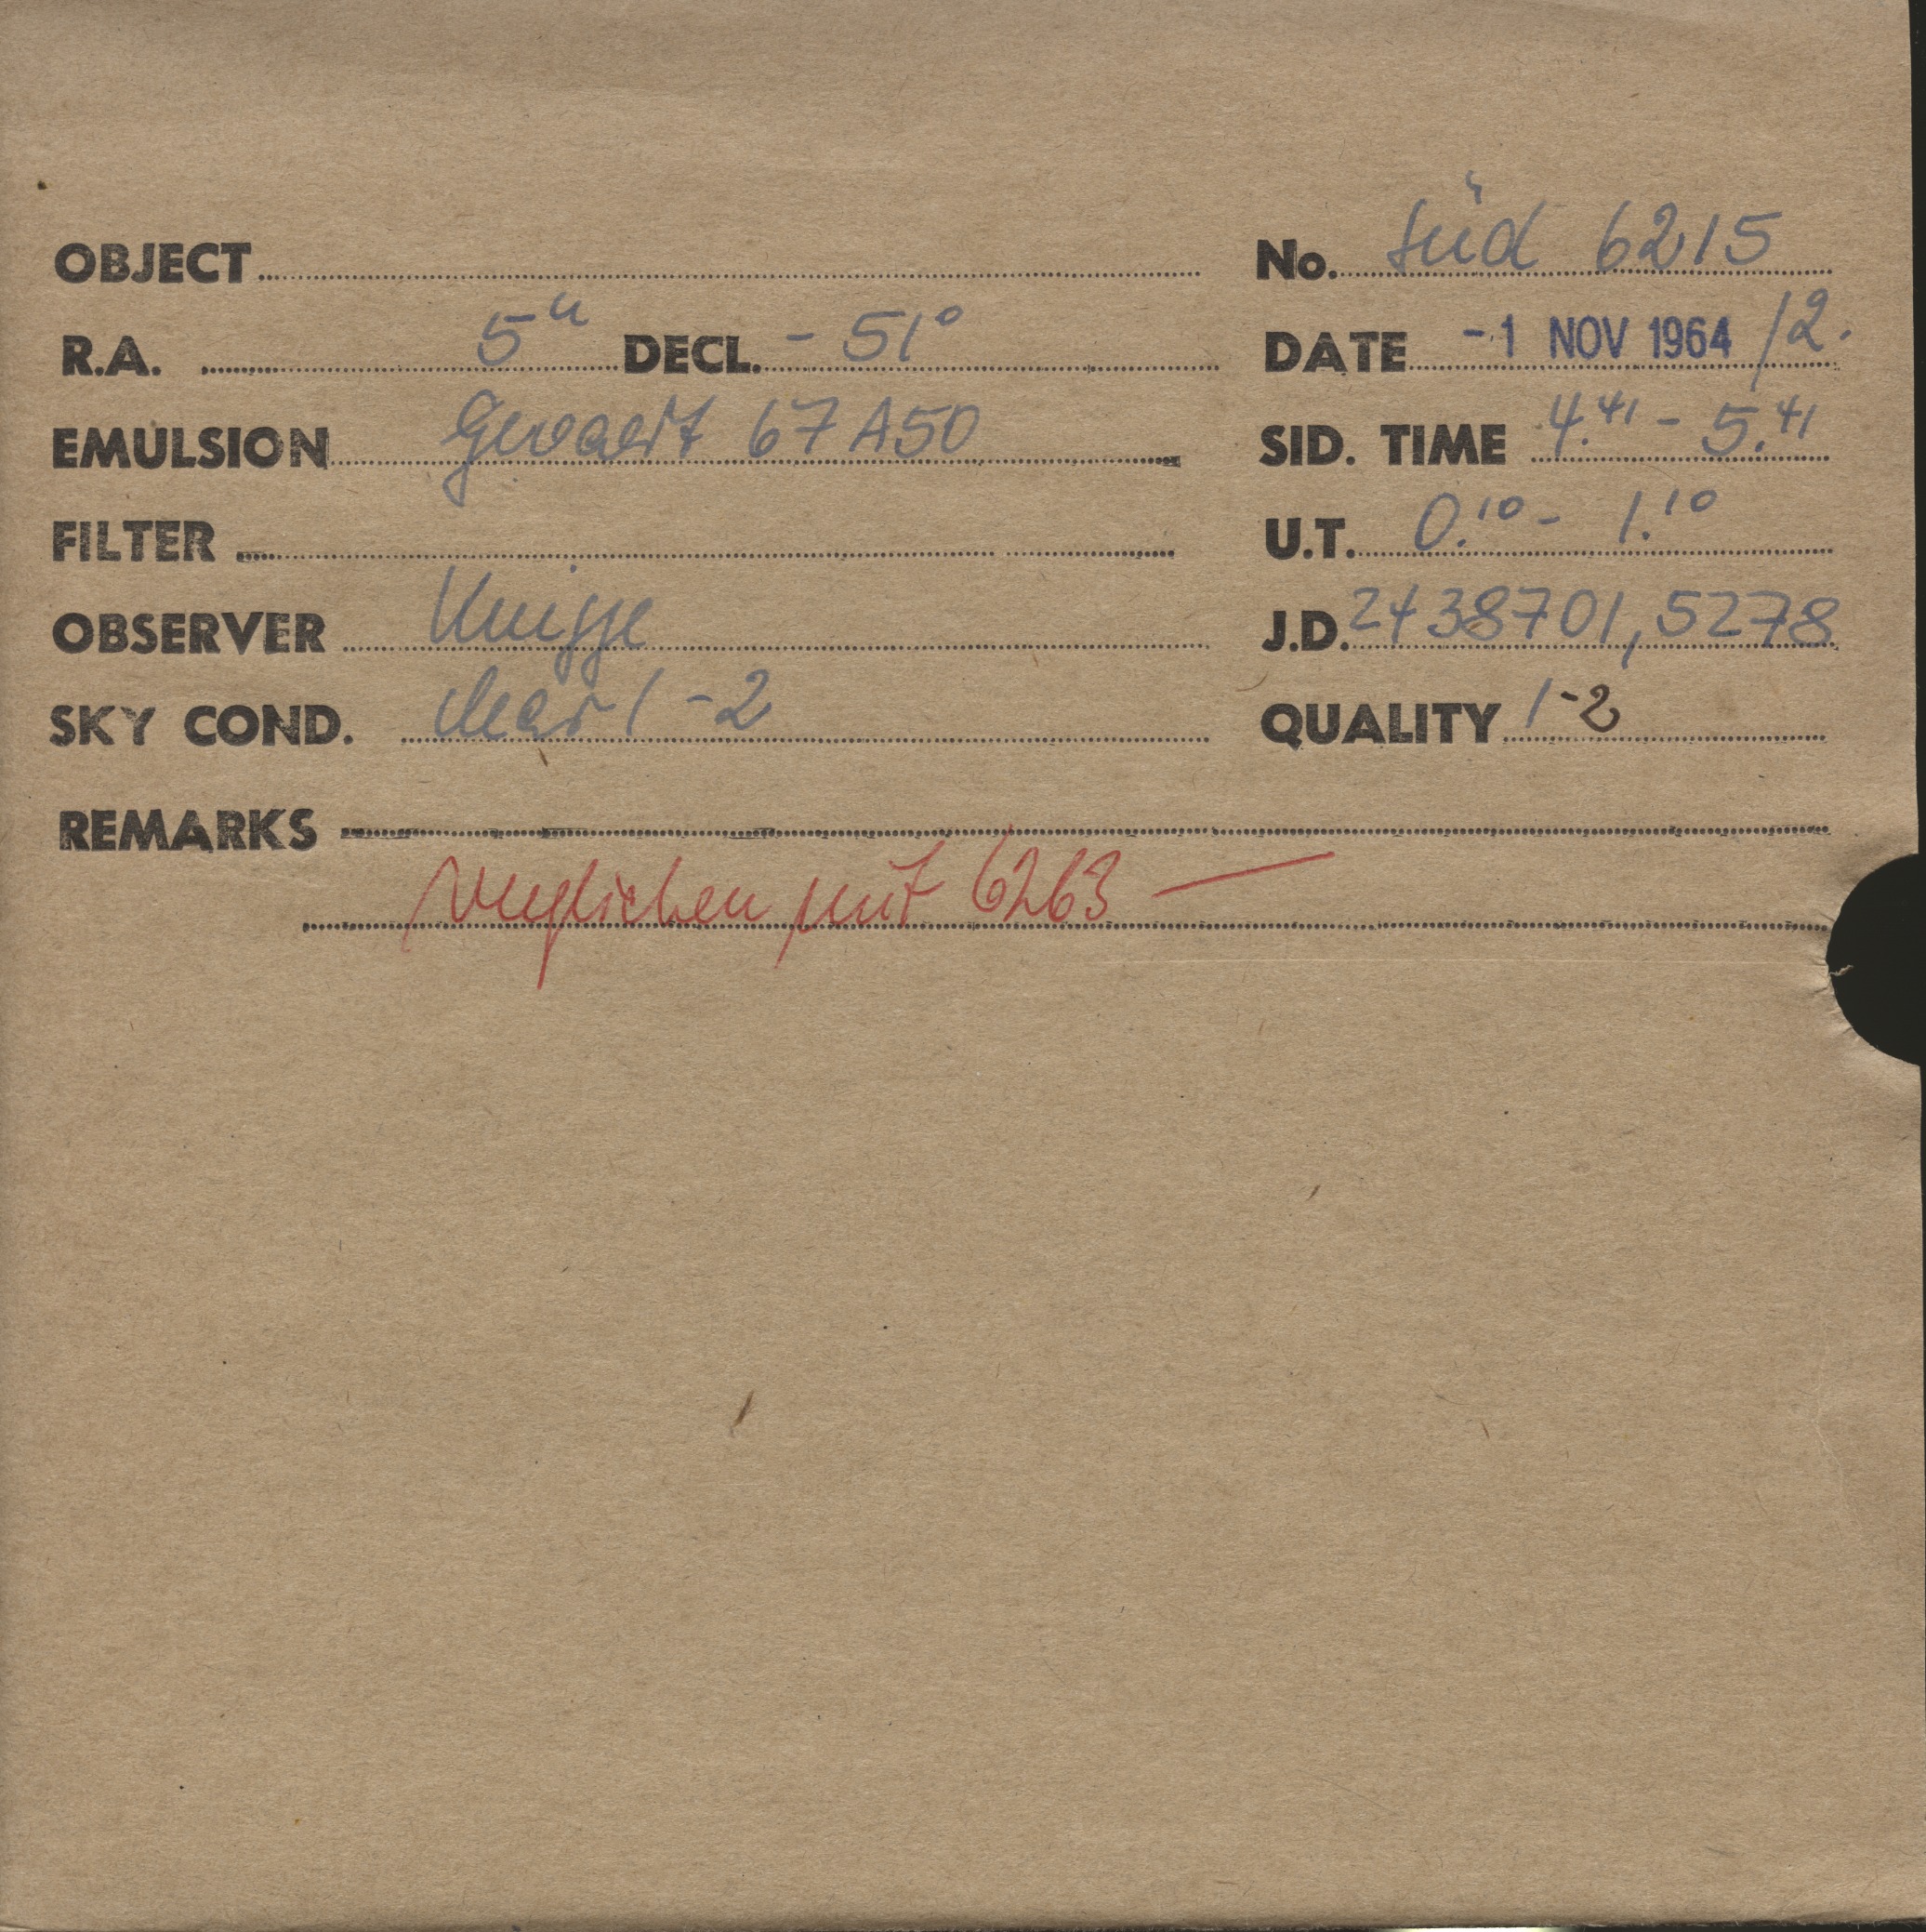 OBJECT
No. Süd 6215
R.A. 5h DECL. - 51°
DATE -1 NOV 1964 /2.
EMULSION Gevaert 67 A50
SID. TIME 4.41 - 5.41
FILTER
U.T. 0.10 - 1.10
OBSERVER Knigge
J.D. 2438701,5278
SKY COND. clear 1 - 2
QUALITY 1-2
REMARKS
verglichen mit 6263 —